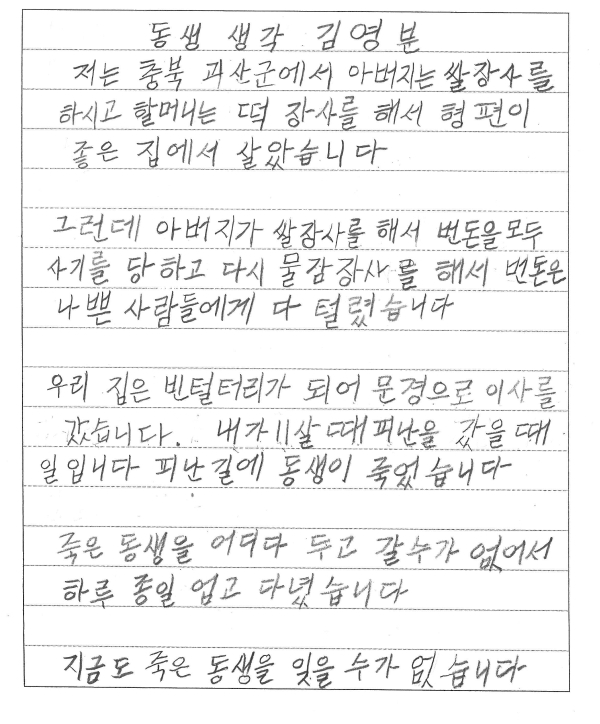 동생 생각 김영분
저는 충북 괴산군에서 아버지는 쌀장사를
하시고 할머니는 떡 장사를 해서 형편이
좋은 집에서 살았습니다
그런데 아버지가 쌀장사를 해서 번돈을모두
사기를 당하고 다시 물감장사를 해서 번돈은
나쁜 사람들에게 다 털렸습니다
우리 집은 빈털터리가 되어 문경으로 이사를
갔습니다. 내가 11살 때피난을 갔을때
일입니다 피난길에 동생이 죽었습니다
죽은 동생을 어디다 두고 갈수가 없어서
하루 종일 업고 다녔습니다
지금도 죽은 동생을 잊을 수가 없습니다